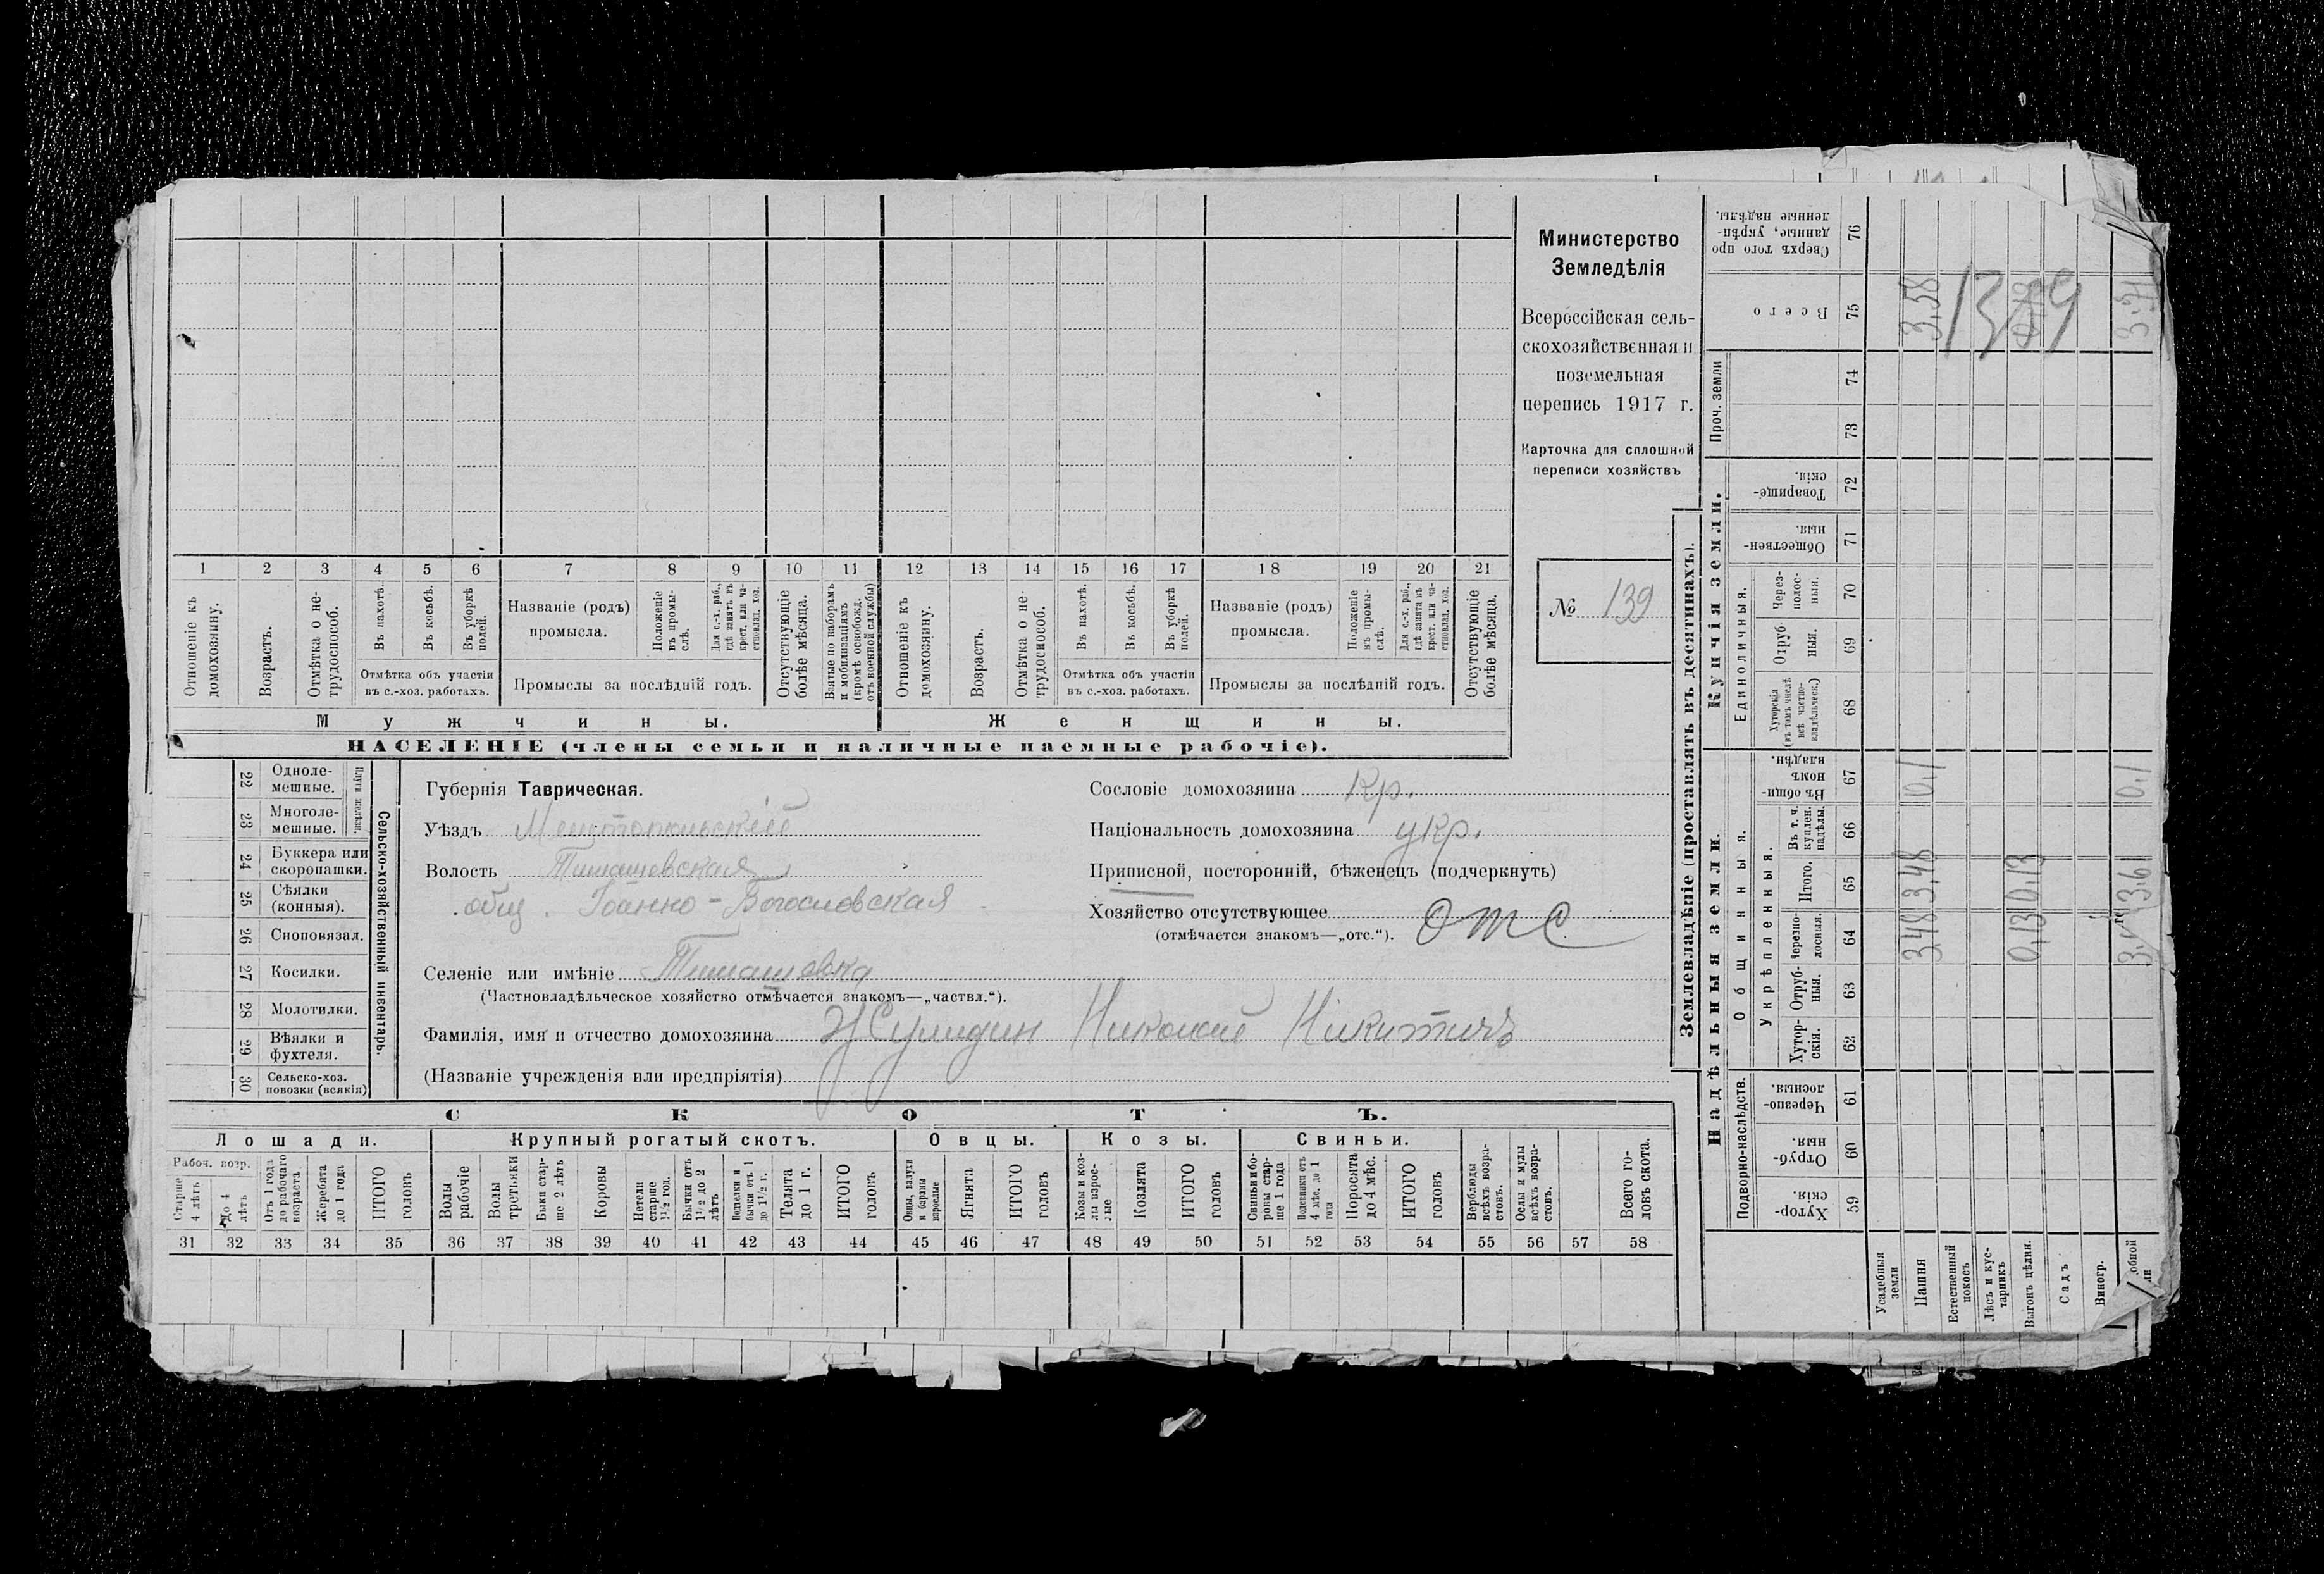 Министерство
Земледѣлія
Всероссійская сель-
скохозяйственная и
поземельная
перепись 1917 г.
Карточка для сплошной
переписи хозяйствъ
№ 139
1 2 3 4 5 6 7 8 9 10 11 12 13 14 15 16 17 18 19 20 21
Отношеніе къ домохозяину.
Возрастъ.
Отмѣтка о не-трудоспособ.
Въ пахотѣ.
Въ косьбѣ.
Въ уборкѣ полей.
Отмѣтка объ участіи
въ с.-хоз. работахъ.
Названіе (родъ)
промысла.
Положеніе въ промы-слѣ.
Для с.-х. раб., гдѣ занятъ въ крест. или ча-стновлад. хоз.
Промыслы за послѣдній годъ.
Отсутствующіе болѣе мѣсяца.
Взятые по наборамъ и мобилизаціямъ (кромѣ освобожд. отъ военной службы)
Отношеніе къ домохозяину.
Возрастъ.
Отмѣтка о не-трудоспособ.
Въ пахотѣ.
Въ косьбѣ.
Въ уборкѣ полей.
Отмѣтка объ участіи
въ с.-хоз. работахъ.
Названіе (родъ)
промысла.
Положеніе въ промы-слѣ.
Для с.-х. раб., гдѣ занята въ крест. или ча-стновлад. хоз.
Промыслы за послѣдній годъ.
Отсутствующіе болѣе мѣсяца.
Мужчины.
Женщины.
НАСЕЛЕНІЕ (члены семьи и наличные наемные рабочіе).
Сельско-хозяйственный инвентарь.
Плуги желѣзн.
22 Одноле-мешные.
23 Многоле-мешные.
24 Буккера или скоропашки.
25 Сѣялки (конныя).
26 Сноповязал.
27 Косилки.
28 Молотилки.
29 Вѣялки и фухтеля.
30 Сельско-хоз. повозки (всякія)
Губернія Таврическая.
Уѣздъ Мелитопольскій
Волость Тимашевская
общ. Іоанно-Богословская
Селеніе или имѣніе Тимашевка
(Частновладѣльческое хозяйство отмѣчается знакомъ—„частвл.“).
Фамилія, имя и отчество домохозяина Жулидин Николай Никитичъ
(Названіе учрежденія или предпріятія)
Сословіе домохозяина Кр.
Національность домохозяина укр.
Приписной, посторонній, бѣженецъ (подчеркнуть)
Хозяйство отсутствующее отс
(отмѣчается знакомъ—„отс.“).
СКОТЪ.
Лошади. Крупный рогатый скотъ. Овцы. Козы. Свиньи.
Рабоч. возр.
Старше 4 лѣтъ
До 4 лѣтъ
Отъ 1 года до рабочаго возраста
Жеребята до 1 года
ИТОГО головъ
Волы рабочіе
Волы третьяки
Быки стар-ше 2 лѣтъ
Коровы
Нетели старше 1½ год.
Бычки отъ 1½ до 2 лѣтъ
Подтелки и бычки отъ 1 до 1½ г.
Телята до 1 г.
ИТОГО головъ
Овцы, валухи и бараны взрослые
Ягнята
ИТОГО головъ
Козы и коз-лы взрос-лые
Козлята
ИТОГО головъ
Свиньи и бо-ровы стар-ше 1 года
Подсвинки отъ 4 мѣс. до 1 года
Поросята до 4 мѣс.
ИТОГО головъ
Верблюды всѣхъ возра-стовъ.
Ослы и мулы всѣхъ возра-стовъ.
Всего го-ловъ скота.
31 32 33 34 35 36 37 38 39 40 41 42 43 44 45 46 47 48 49 50 51 52 53 54 55 56 57 58
Землевладѣніе (проставлять въ десятинахъ).
Надѣльныя земли.
Подворно-наслѣдств.
Хутор-скія. 59
Отруб-ныя. 60
Черезпо-лосныя. 61
Общинныя.
Укрѣпленныя.
Хутор-скія. 62
Отруб-ныя. 63
Черезпо-лосныя. 64
Итого. 65
Въ т. ч. куплен. надѣлы. 66
Въ общин-номъ владѣн. 67
Купчія земли.
Единоличныя.
Хуторскія (въ томъ числѣ всѣ частно-владѣльческ.) 68
Отруб-ныя. 69
Через-полос-ныя. 70
Обществен-ныя. 71
Товарище-скія. 72
Проч. земли
73
74
Всего 75
Сверхъ того про-данные, укрѣп-ленные надѣлы. 76
Усадебныя земли
Пашня 3,48 3,48 0,1 3,58
Естественный покосъ
Лѣсъ и кус-тарникъ
Выгонъ цѣлин. 0,13 0,13
Садъ
Виногр.
3,61 0,1 3,71